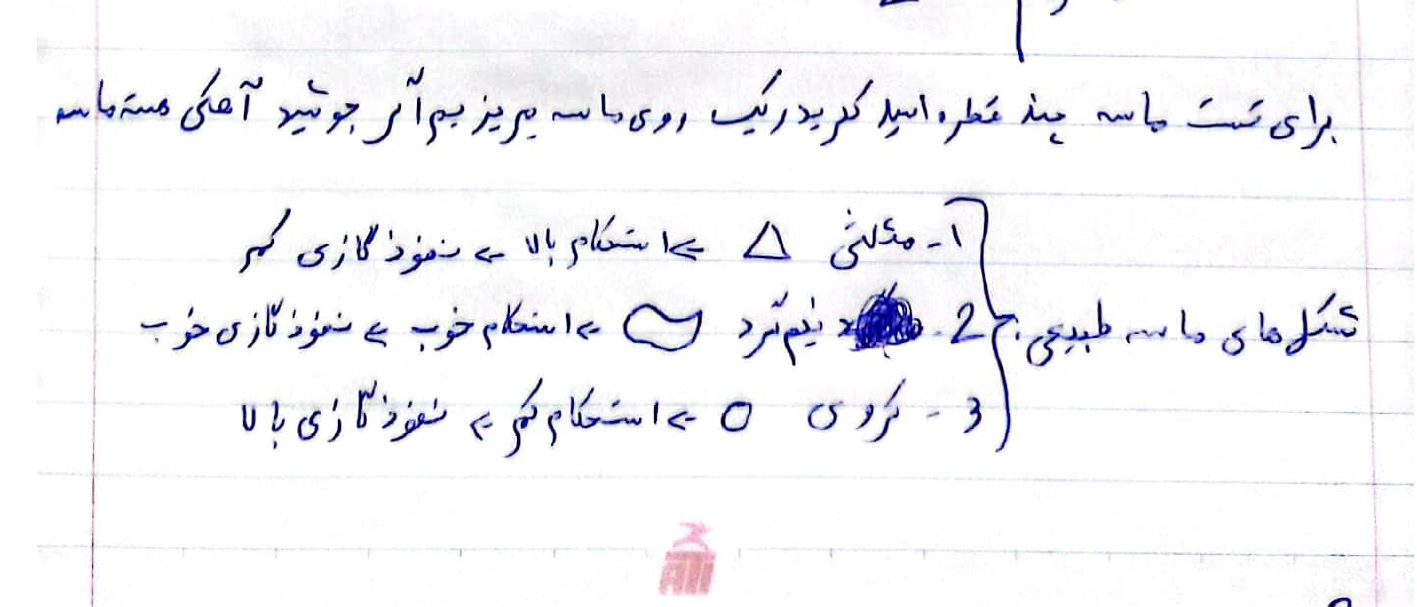 برای تست ماسه چند قطره اسید کلریدریک روی ماسه بریزیم اگر جوشید آهکی هست ماسه
1- مثلثی △ => استحکام بالا => نفوذ گازی کم
شکل های ماسه طبیعی: 2- نیم گرد => استحکام خوب => نفوذ گازی خوب
3- کروی O => استحکام کم => نفوذ گازی بالا